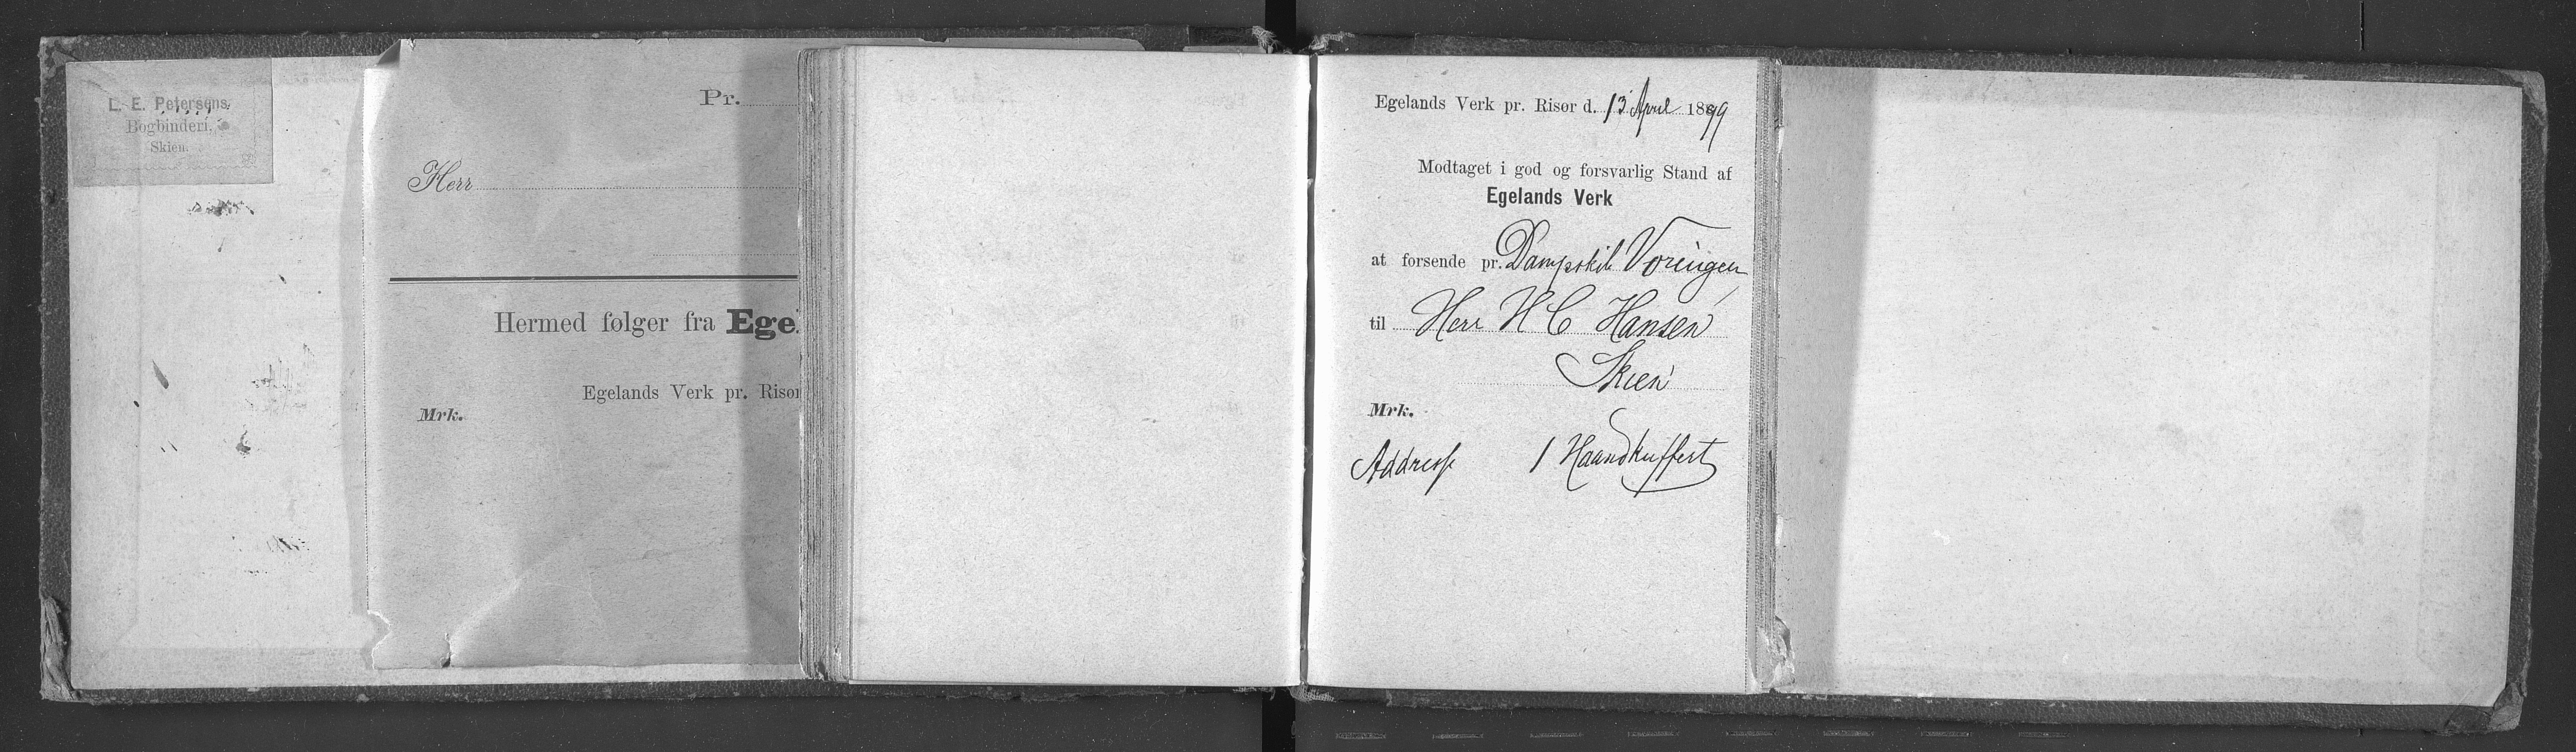 L. E. Petersens
Bogbinderi.
Skien.
Pr.
Herr
Hermed følger fra Ege
Egelands Verk pr. Risør
Mrk.
Egelands Verk pr. Risør d. 13 April 1899
Modtaget i god og forsvarlig Stand af
Egelands Verk
at forsende pr. Dampskib Vøringen
til Herr H C Hansen
Skien
Mrk.
Addresse 1 Haandkuffert